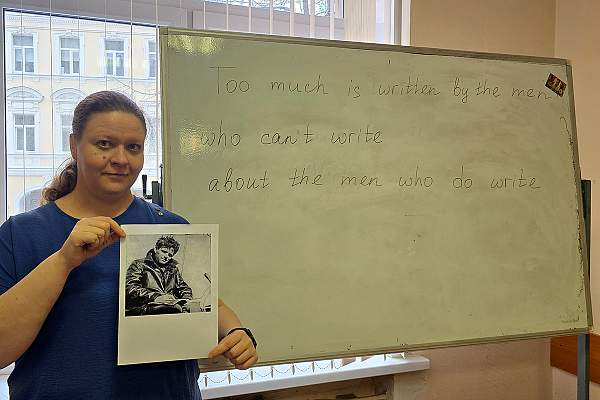 Too much is written by the men
who can't write
about the men who do write